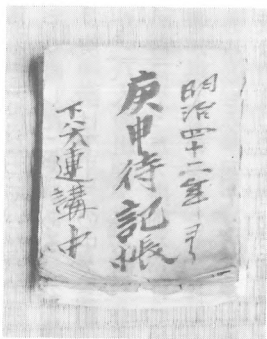 明治四十二年ヨリ
庚申待記帳
下矢連講中